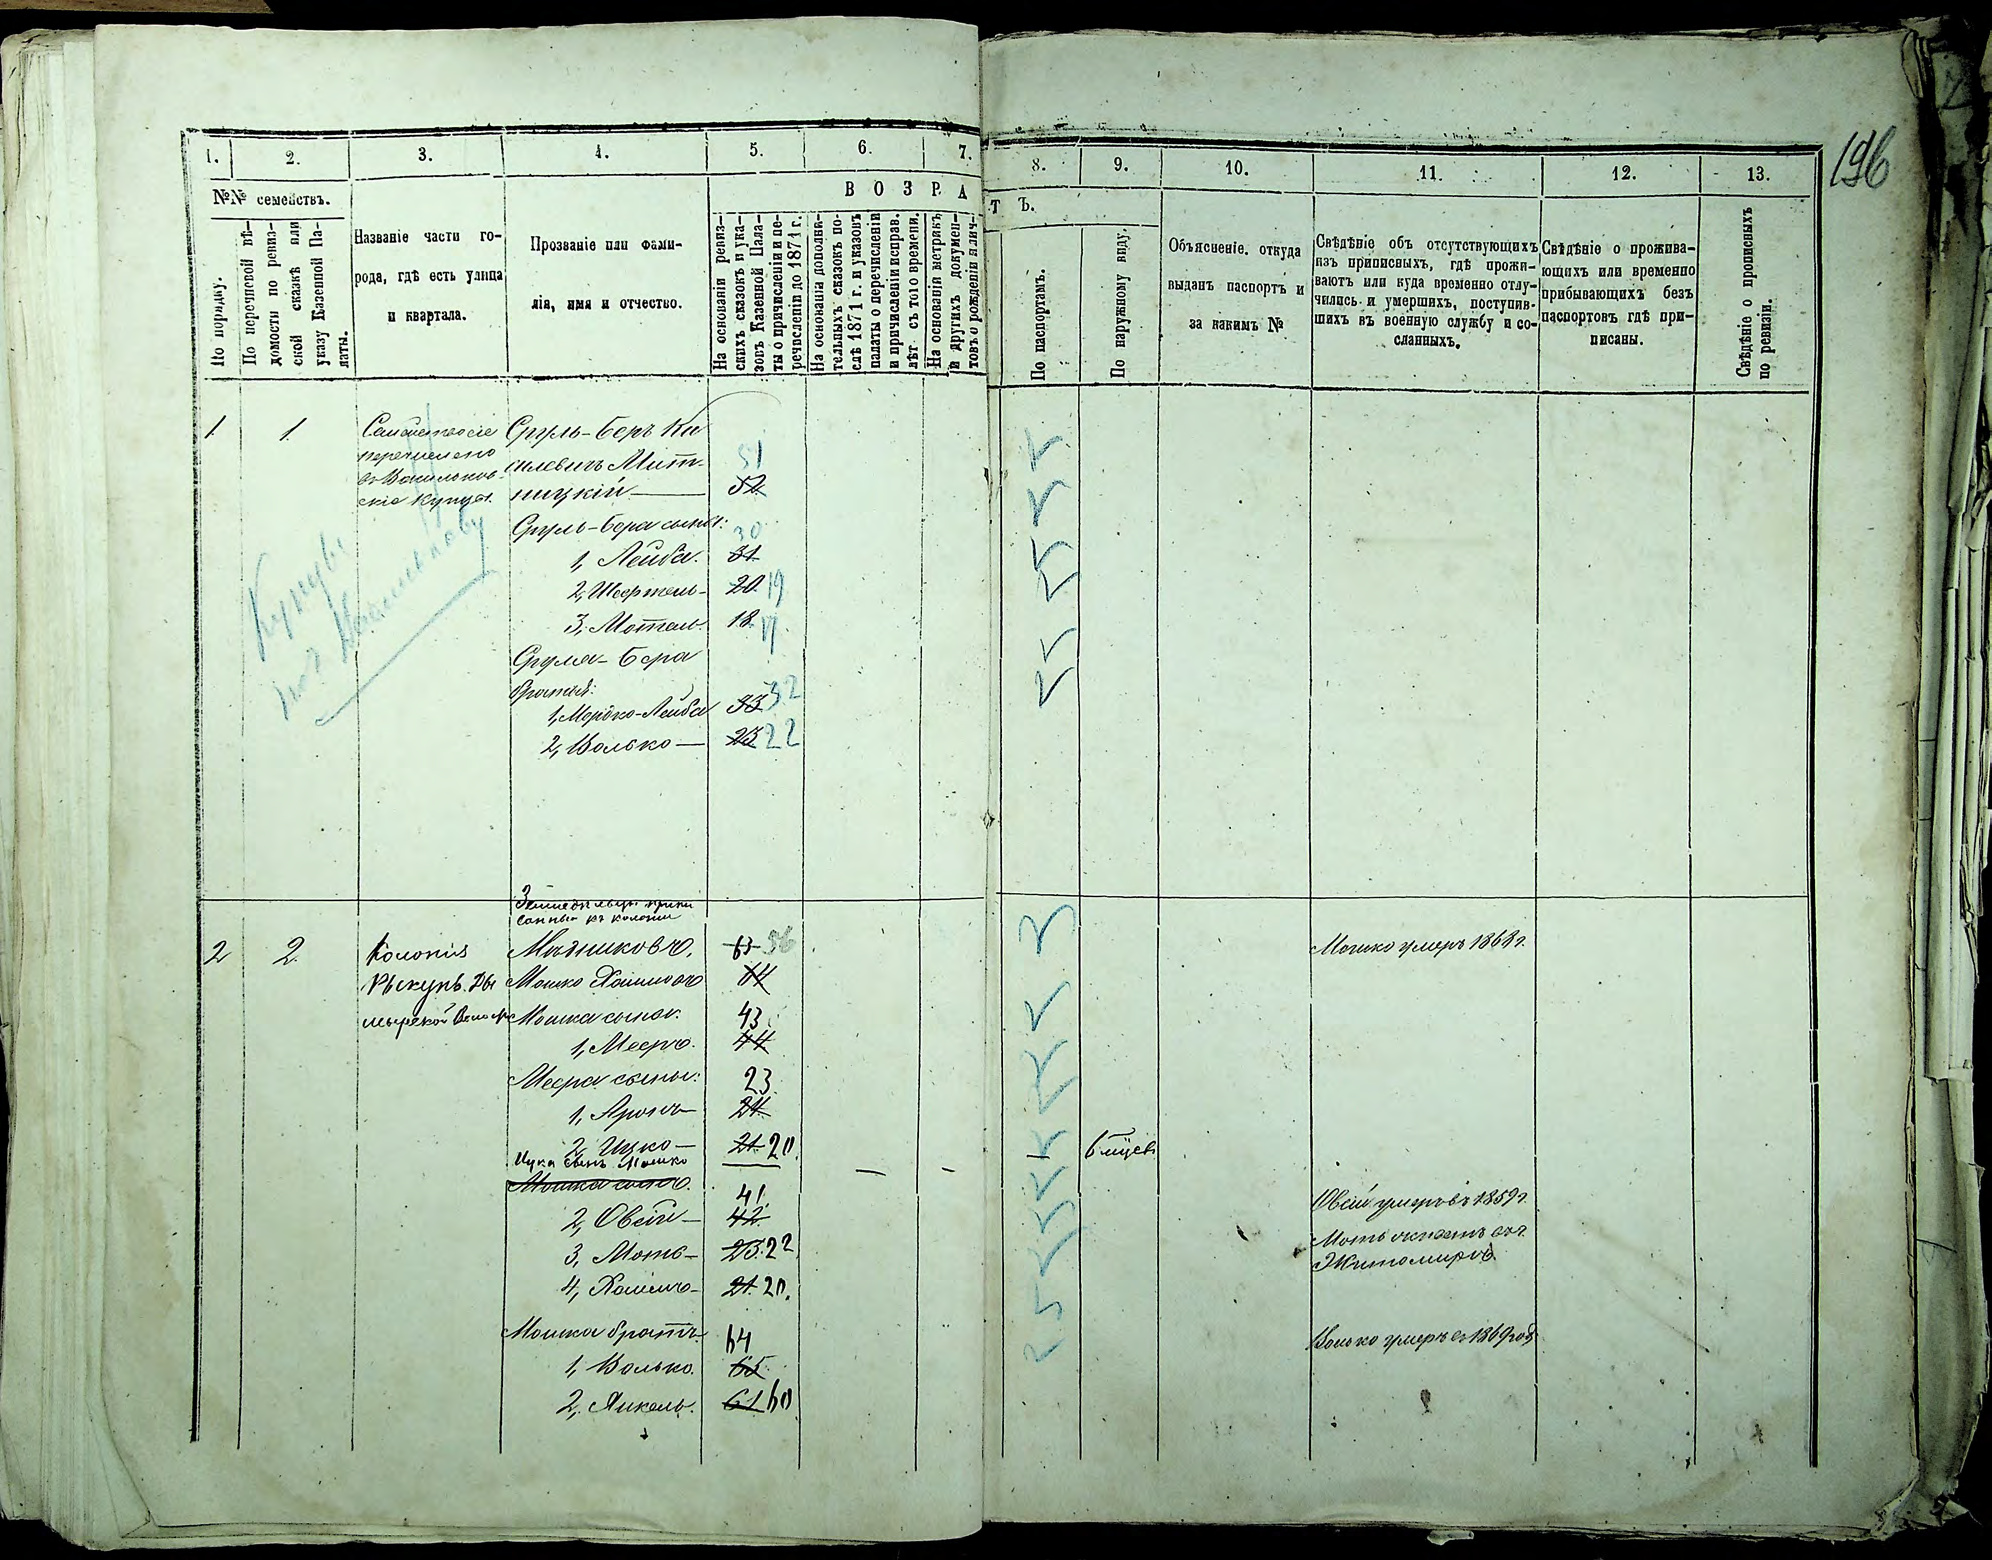 196
1. 2. 3. 4. 5. 6. 7. 8. 9. 10. 11. 12. 13.
№№ семействъ.
ВОЗРАСТЪ.
По порядку.
По перечневой вѣ-
домости по ревиз-
ской сказкѣ или
указу Казенной Па-
латы.
Названіе части го-
рода, гдѣ есть улица
и квартала.
Прозваніе или фами-
лія, имя и отчество.
На основаніи ревиз-
скихъ сказокъ и ука-
зовъ Казенной Пала-
ты о причисленіи и пе-
речисленіи до 1871 г.
На основаніи дополни-
тельныхъ сказокъ по-
слѣ 1871 г. и указовъ
палаты о перечисленіи
и причисленіи исправ.
лѣт съ того времени.
На основаніи метрикъ
и другихъ докумен-
товъ о рожденіи налич-
По паспортамъ.
По наружному виду.
Объясненіе, откуда
выданъ паспортъ и
за какимъ №
Свѣдѣніе объ отсутствующихъ
изъ приписныхъ, гдѣ прожи-
ваютъ или куда временно отлу-
чились и умершихъ, поступив-
шихъ въ военную службу и со-
сланныхъ.
Свѣдѣніе о прожива-
ющихъ или временно
прибывающихъ безъ
паспортовъ гдѣ при-
писаны.
Свѣдѣніе о прописныхъ
по ревизіи.
1. 1. Семейство сіе Сруль-Беръ Ки
перечислено
въ Васильков-
скіе купцы.
силевичъ Мит- 51
ницкій 52
Купцы
по г. Василькову
Сруль-Бера сыны: 30
1, Лейба. 31
2, Шефтель 20 19
3, Мотель. 18 17
Срула-Бера
братья:
1, Мордко-Лейба 33 32
2, Волько 23 22
Земледѣльцы припи
санные къ колоніи
2 2. Колонія
Мошко Хаимовъ 64
Мошко умеръ 1868 г.
Мошка сынъ: 43
1, Мееръ. 44
Меера сыны: 23
1, Аронъ 24
2, Ицко 21 20
Ицка сынъ Мошко
6 мѣсяц.
Мошка сыны. 41
2, Овсѣй 42
Овсѣй умеръ въ 1859 г.
3, Моть 23 22
Житомирѣ.
4, Хаимъ 21 20.
Мошка братъ 64
1, Волько. 65
Волько умеръ въ 1869 год
2, Янкель. 61 60